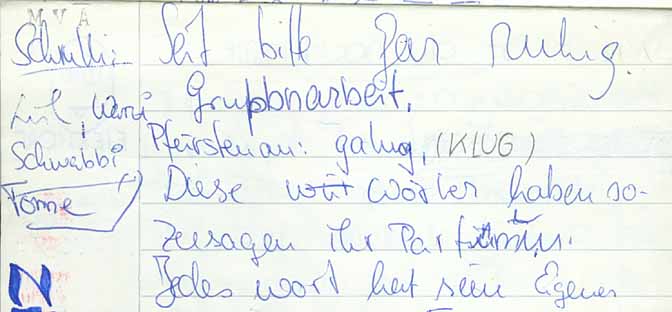 M V A
Schrulli:
Seit bitte gar ruhig.
Grupbnarbeit.
Schwabbi
Tonne
galug, (KLUG)
Diese Wörter haben so-
zusagen ihr Parfüm.
Jedes wort hat sein Eigenes
N